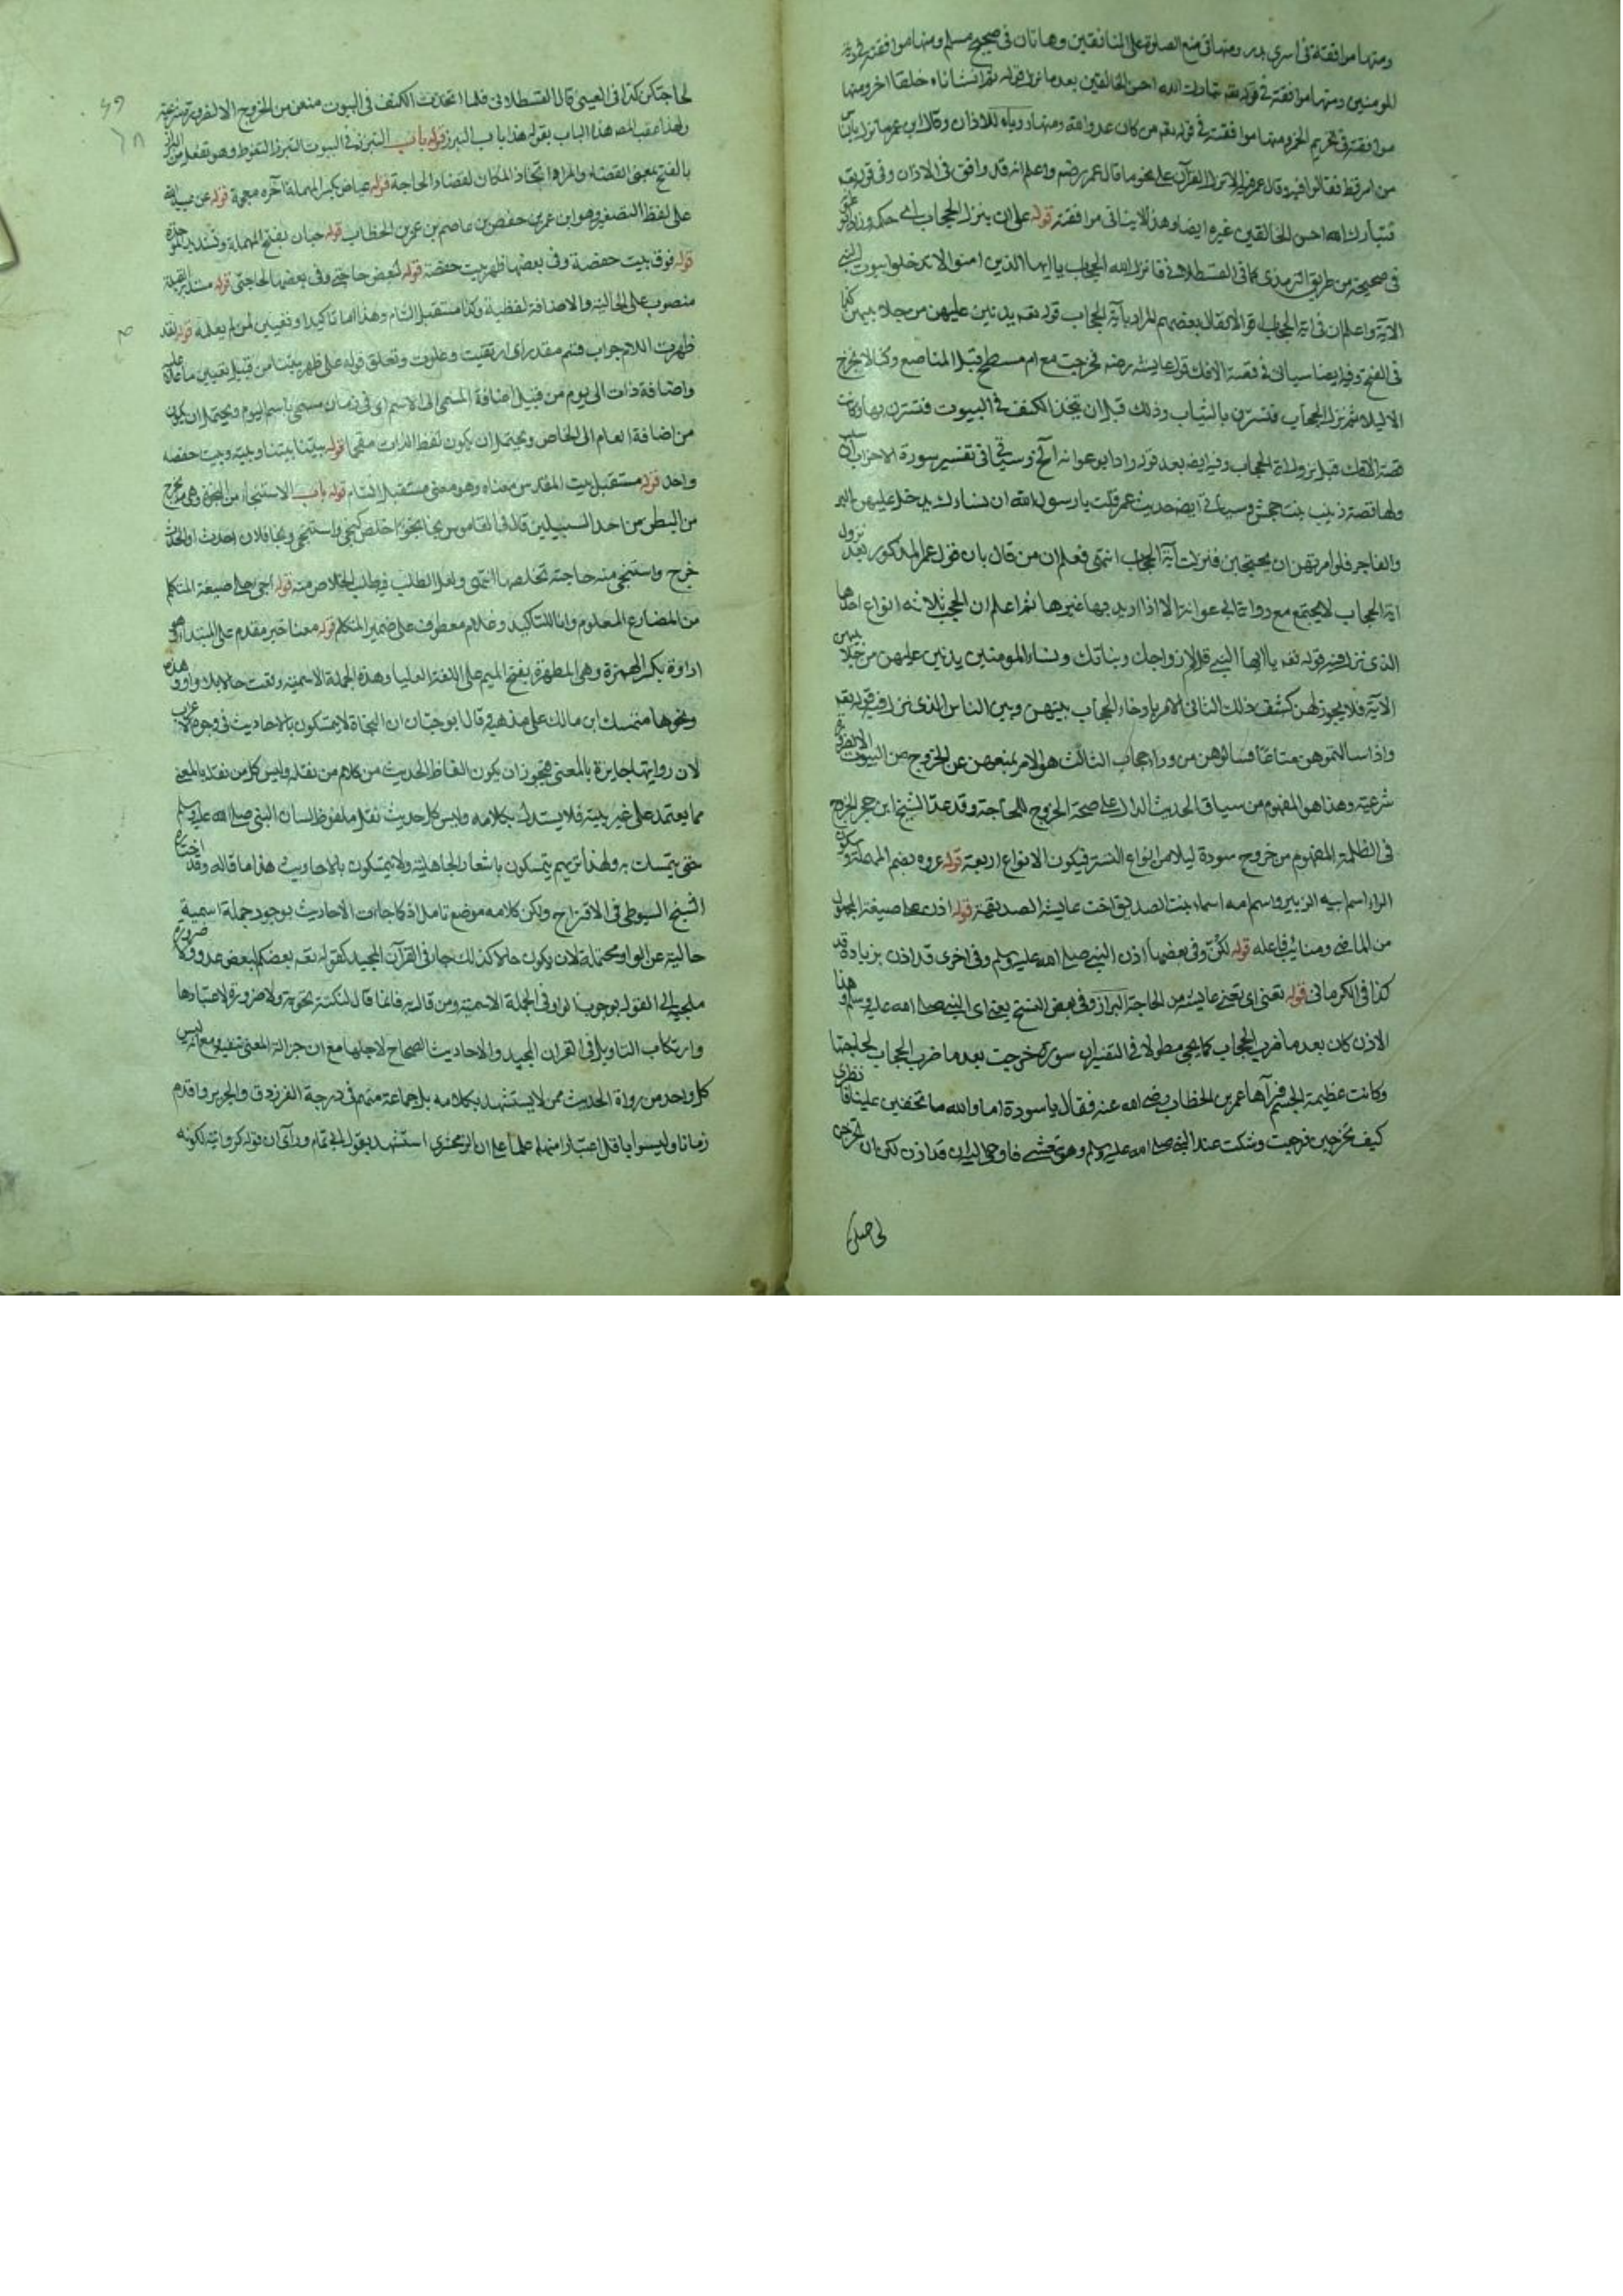 ومنها موافقته في اسرى بدر ومنها في منع الصلوة على المنافقين وهاتان في صحيح مسلم ومنها موافقته في
المومنين ومنها موافقته في قوله تعم تبارك الله احسن الخالقين بعد ما نزل قوله ثم انشاناه خلقا اخر ومنها
موافقته في تحريم الخمر ومنها موافقته في قوله تعم من كان عدوا لله ومنها رؤياه للاذان وقال ابن عمر ما نزل بالناس
من امر قط فقالوا فيه وقال عمر فيه الا نزل القرآن على نحو ما قال عمر رضه واعلم انه قد وافق في الاذان وفي قوله تعم
فتبارك الله احسن الخالقين غيره ايضا وهذا لا ينافي موافقته قوله على ان ينزل الحجاب اي حكمه وزاد ابو
في صحيحه من طريق الزهري كما في القسطلاني فانزل الله الحجاب يا ايها الذين امنوا لا تدخلوا بيوت النبي
الآية واعلم ان في آية الحجاب اقوالا فقال بعضهم المراد بآية الحجاب قوله تعم يدنين عليهن من جلابيبهن كذا
في الفتح وفيه ايضا سياتي في قصة الافك قول عايشه رضه فخرجت مع ام مسطح قبل المناصع وكنا لا نخرج
الا ليلا ثم نزل الحجاب فتسترن بالثياب وذلك قبل ان تتخذ الكنف في البيوت فتسترن بها وكانت
قصة الافك قبل نزول آية الحجاب وفيه ايضه بعد قوله زاد ابو عوانه الخ وسياتي في تفسير سورة الاحزاب ان سبب
ولها قصة زينب بنت جحش وسياتي ايضه حديث عمر قلت يا رسول الله ان نساءك يدخل عليهن البر
والفاجر فلو امرتهن ان يحتجبن فنزلت آية الحجاب انتهى فعلم ان من قال بان قول عمر المذكور بعد نزول
آية الحجاب لا يجتمع مع رواية ابي عوانة الا اذا اريد بها غيرها ثم اعلم ان الحجب ثلاثة انواع احدها
الذي نزل فيه قوله تعم يا ايها النبي قل لازواجك وبناتك ونساء المومنين يدنين عليهن من جلابيبهن
الآية فلا يجوز لهن كشف ذلك الثاني الامر بارخاء الحجاب بينهن وبين الناس الذي نزل فيه قوله تعم
واذا سالتموهن متاعا فسالوهن من وراء حجاب الثالث هو الامر بمنعهن عن الخروج من البيوت الا لضرورة
شرعية وهذا هو المفهوم من سياق الحديث الدال على صحة الخروج للحاجة وقد عد الشيخ ابن حجر الخروج
في الظلمة المفهوم من خروج سودة ليلا من انواع التستر فيكون الانواع اربعة قوله عروه بضم المهملة وسكون
الراء اسم ابيه الزبير واسم امه اسماء بنت الصديق اخت عايشه الصديقة قوله اذن على صيغة المجهول
من الماضي ومنا نائب فاعله قوله لكن وفي بعضها اذن النبي صلى الله عليه وسلم وفي اخرى قد اذن بزيادة قد
كذا في الكرماني قوله تعني اي تعني عايشه من الحاجة البراز وفي بعض النسخ يعني اي النبي صلى الله عليه وسلم وهذا
الاذن كان بعد ما ضرب الحجاب كما يجي مطولا في التفسير ان سودة خرجت بعد ما ضرب الحجاب لحاجتها
وكانت عظيمة الجسم فرآها عمر بن الخطاب رضي الله عنه فقال يا سودة اما والله ما تخفين علينا فانظري
كيف تخرجين فرجعت وشكت عند النبي صلى الله عليه وسلم وهو يتعشى فاوحي اليه ان قد اذن لكن ان تخرجن
لحاجتكن كذا في العيني قال القسطلاني فلما اتخذت الكنف في البيوت منعن من الخروج الا لضرورة شرعية
ولهذا عقب المصـ هذا الباب بقوله هذا باب التبرز قوله باب التبرز في البيوت التبرز التغوط وهو تفعل من البراز
بالفتح بمعنى الفضاء والمراد اتخاذ المكان لقضاء الحاجة قوله عياض بكسر المهملة آخره معجمة قوله عن عبيد الله
على لفظ التصغير وهو ابن عمر بن حفص بن عاصم بن عمر بن الخطاب قوله حبان بفتح المهملة وتشديد الموحدة
قوله فوق بيت حفصة وفي بعضها ظهر بيت حفصة قوله لبعض حاجتي وفي بعضها لحاجتي قوله مستدبر القبلة
منصوب على الحالية والاضافة لفظية وكذا مستقبل الشام وهذا اما تاكيد او تعيين لمن لم يعلمه قوله لقد
ظهرت اللام جواب قسم مقدر اي ارتقيت وعلوت وتعلق قوله على ظهر بيتنا من قبيل تعيين ما عليه
واضافة ذات الى يوم من قبيل اضافة المسمى الى الاسم اي في زمان مسمى باسم اليوم ويحتمل ان يكون
من اضافة العام الى الخاص ويحتمل ان يكون لفظ الذات مقحما قوله بيتنا بيتنا وبيته وبيت حفصه
واحد قوله مستقبل بيت المقدس معناه وهو معنى مستقبل الشام قوله باب الاستنجاء من النجو وهي ما يخرج
من البطن من احد السبيلين قال في القاموس نجا ينجو اخلص كنجى واستنجى ونجا فلان احدث او الحدث
خرج واستنجى منه حاجته تخلصها انتهى ولعل الطلب فيه طلب الخلاص منه قوله اجي على صيغة المتكلم
من المضارع المعلوم وانا للتاكيد وغلام معطوف على ضمير المتكلم قوله معنا خبر مقدم على المبتدأ وهو
اداوة بكسر الهمزة وهي المطهرة بفتح الميم على اللغة العليا وهذه الجملة الاسمية وقعت حالا بلا واو وهذه
ونحوها متمسك ابن مالك على مذهبه قال ابو حيان ان النحاة لا يتمسكون بالاحاديث في وجوه الاعراب
لان روايتها جايزة بالمعنى فيجوز ان يكون الفاظ الحديث من كلام من نقله وليس كل من نقله بالمعنى
مما يعتمد على غير بينة فلا يستدل بكلامه وليس كل حديث نقل ملفوظ لسان النبي صلى الله عليه وسلم
حتى يتمسك به ولهذا تريهم يتمسكون باشعار الجاهلية ولا يتمسكون بالاحاديث هذا ما قاله وقد اختاره
الشيخ السيوطي في الاقتراح ولكن كلامه موضع تامل اذ كما جاءت الاحاديث بوجود جملة اسمية
حالية عن الواو محتملة لان يكون حالا كذلك جاء في القرآن المجيد كقوله تعم بعضكم لبعض عدو ولا ضرورة
ملجية الى القول بوجوب الواو في الجملة الاسمية ومن قال به فانما قال لنكتة نحوية ولا ضرورة لاعتبارها
وارتكاب التاويل في القران المجيد والاحاديث الصحاح لاجلها مع ان جزالة المعنى تنفيه مع انه ليس
كل واحد من رواة الحديث ممن لا يستشهد بكلامه بل جماعة منهم في درجة الفرزدق والجرير واقدم
زمانا وليسوا باقل اعتبارا منهما علما على ان الزمخشري استشهد بقول ابي تمام وراى ان قوله كروايته لكونه